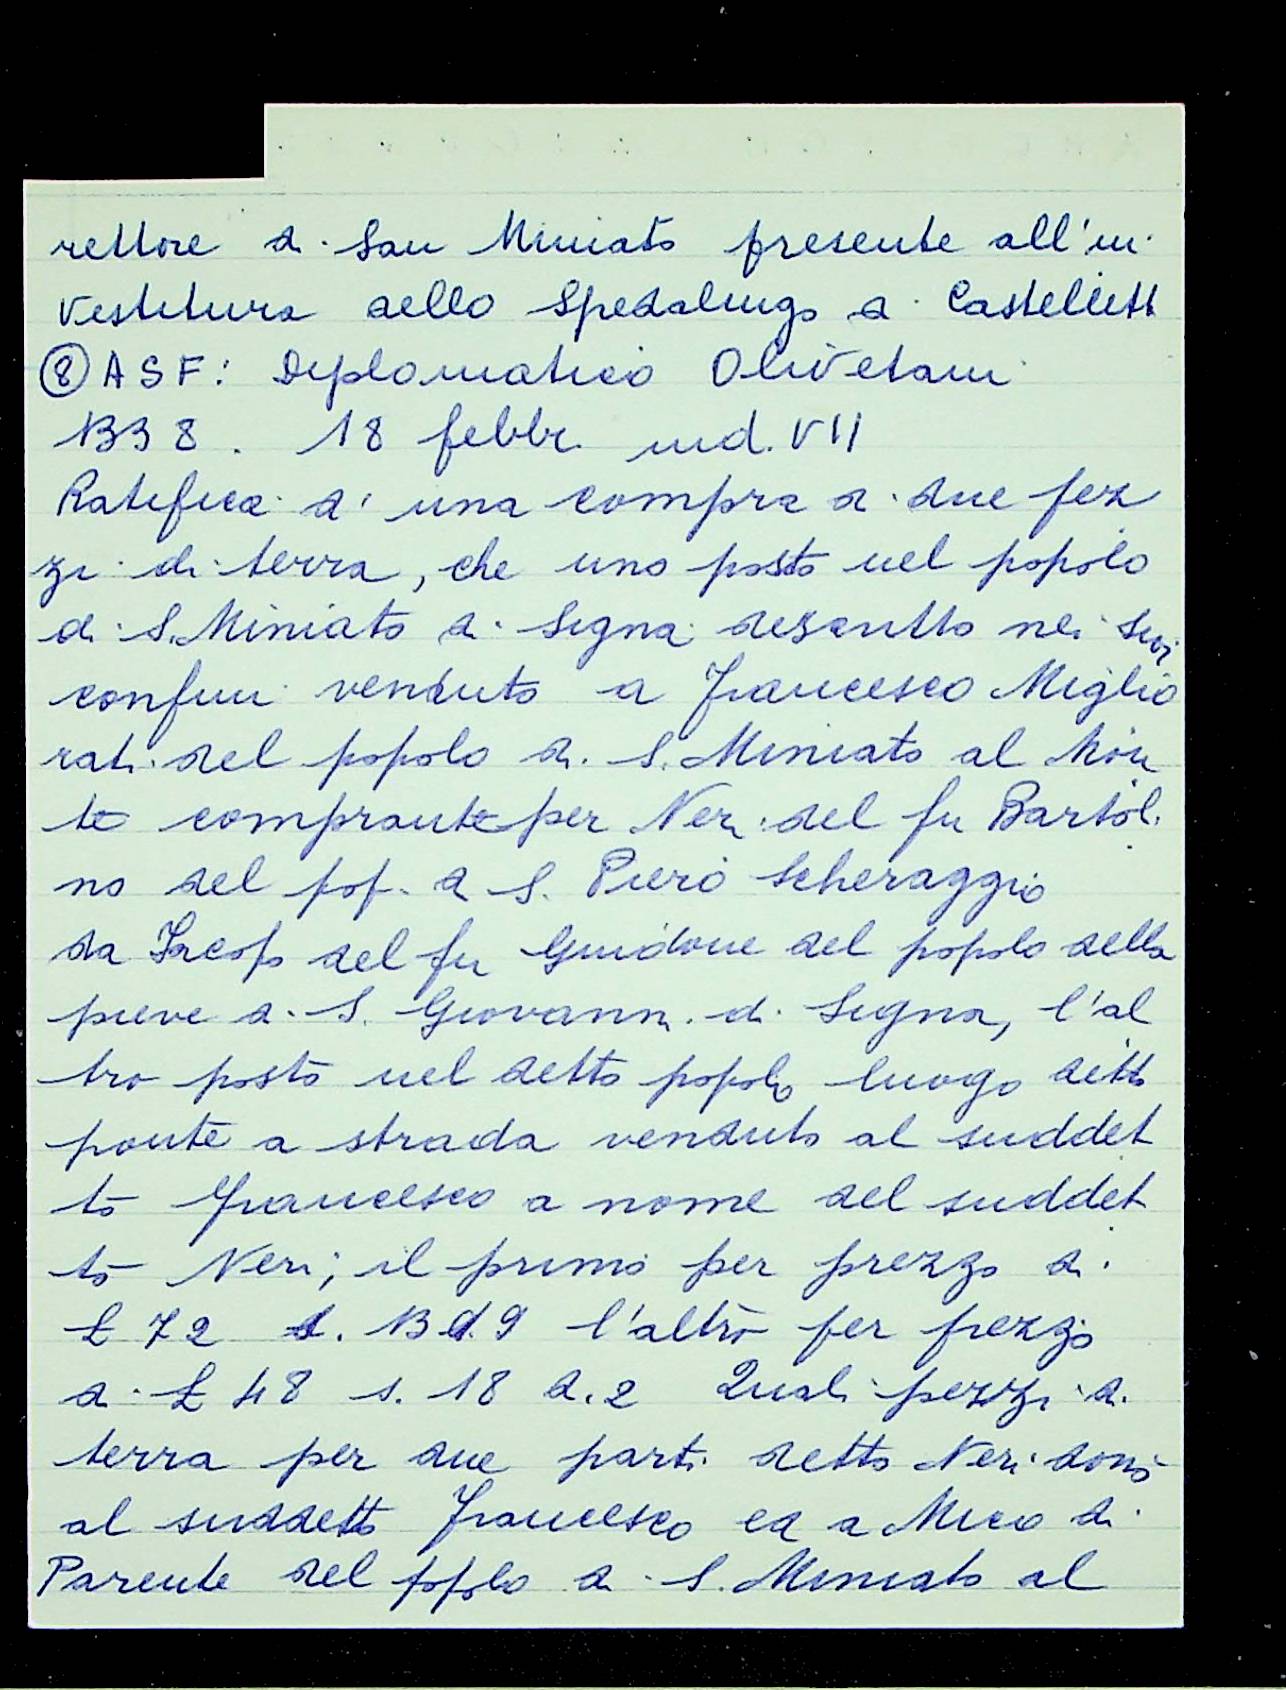 rettore di San Miniato presente all'in-
vestitura dello Spedalingo di Castelletti
⑧ ASF: Diplomatico Olivetani
1338. 18 febbr. ind. VII
Ratifica di una compra di due pez
zi di terra, che uno posto nel popolo
di S. Miniato di Signa descritto nei suoi
confini venduto a Francesco Miglio
rati del popolo di S. Miniato al Mon
te comprante per Neri del fu Bartoli
no del pop. di S. Piero Scheraggio
da Iacopo del fu Guidone del popolo della
pieve di S. Giovanni di Signa, l'al
tro posto nel detto popolo luogo detto
ponte a strada venduto al suddet
to Francesco a nome del suddet
to Neri; il primo per prezzo di
£ 72 s. 13 d. 9 l'altro per prezzo
di £ 48 s. 18 d. 2 Quali pezzi di
terra per due parti detto Neri donò
al suddetto Francesco ed a Mico di
Parente del popolo di S. Miniato al